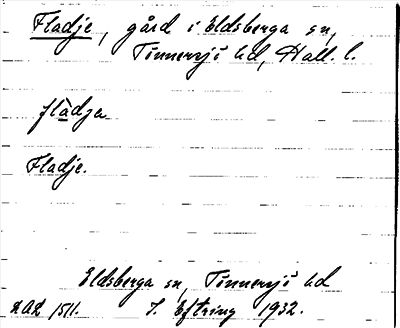 Fladje, gård i Eldsberga sn,
Tönnersjö hd, Hall. l.
flàdja
Fladje.
Eldsberga sn, Tönnersjö hd
LAL 1511. I. Eftring 1932.